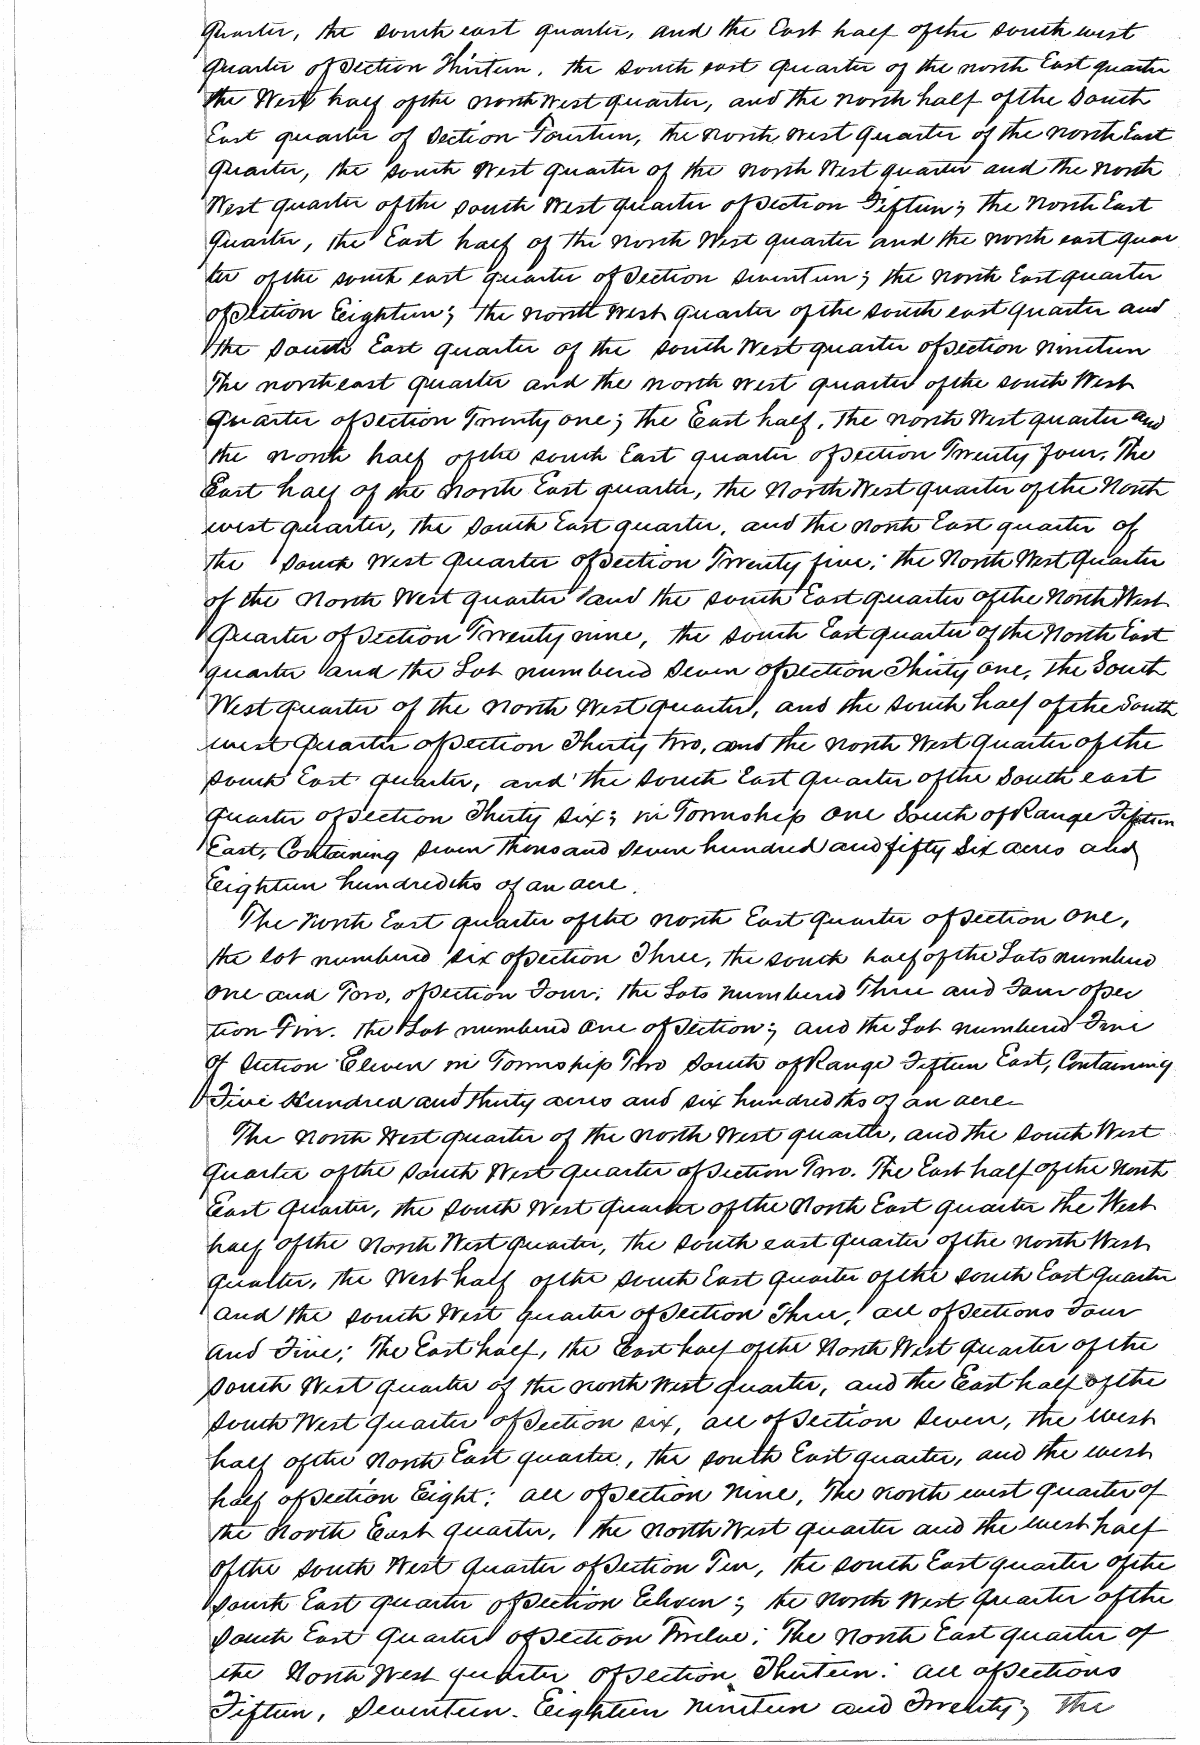 quarter, the south east quarter, and the East half of the south west
quarter of Section Thirteen, the south east quarter of the north East quarter
the West half of the north West quarter, and the north half of the South
East quarter of Section Fourteen, the North West quarter of the north East
quarter, the south West quarter of the north West quarter and the north
West quarter of the south West quarter of Section Fifteen; the North East
quarter, the East half of the North West quarter and the north east quar
ter of the south east quarter of Section Seventeen; the north East quarter
of Section Eighteen; the north West quarter of the south east quarter and
the South East quarter of the south West quarter of Section Nineteen
The north east quarter and the north west quarter of the south West
quarter of Section Twenty one; the East half, the north West quarter and
the north half of the south East quarter of Section Twenty four, The
East half of the North East quarter, the North West quarter of the North
west quarter, the South East quarter, and the North East quarter of
the South West quarter of Section Twenty five; the North West quarter
of the North West quarter and the south East quarter of the North West
quarter of Section Twenty nine, the south East quarter of the North East
quarter and the Lot numbered Seven of Section Thirty one, the South
West quarter of the North West quarter, and the South half of the South
west quarter of Section Thirty two, and the North West quarter of the
south East quarter, and the South East quarter of the South east
quarter of Section Thirty Six; in Township One South of Range Fifteen
East, Containing Seven Thousand Seven hundred and fifty Six acres and
Eighteen hundredths of an acre.
The North East quarter of the north East quarter of Section One,
the Lot numbered Six of Section Three, the south half of the Lots numbered
One and Two, of Section Four; the Lots numbered Three and Four of Sec
tion Five. the Lot numbered One of Section; and the Lot numbered Five
of Section Eleven in Township Two South of Range Fifteen East, Containing
Five Hundred and thirty acres and six hundredths of an acre
The North West quarter of the north West quarter, and the South West
quarter of the South West quarter of Section Two. The East half of the North
East quarter, the South West quarter of the North East quarter the West
half of the North West quarter, the south east quarter of the north West
quarter, the West half of the south East quarter of the south East quarter
and the south West quarter of Section Three, all of Sections Four
and Five; The East half, the East half of the North West quarter of the
South West quarter of the north West quarter, and the East half of the
South West quarter of Section Six, all of Section Seven, the west
half of the North East quarter, the south East quarter, and the west
half of Section Eight; all of Section Nine, The north west quarter of
the North East quarter, the North West quarter and the west half
of the South West quarter of Section Ten, the south East quarter of the
South East quarter of Section Eleven; the North West quarter of the
South East quarter of Section Twelve; The North East quarter of
the North West quarter of Section Thirteen: all of Sections
Fifteen, Seventeen. Eighteen Nineteen and Twenty; The